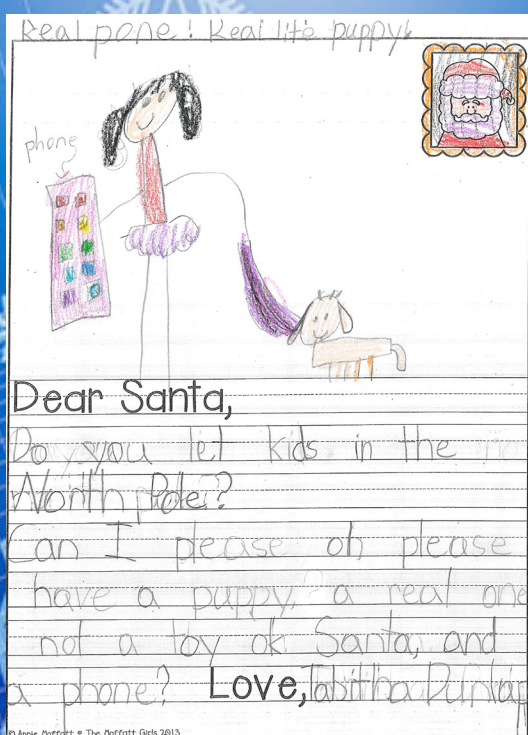 Real pone! Real life puppy!
phone
Dear Santa,
Do you let kids in the
North Pole?
Can I please oh please
have a puppy, a real one
not a toy ok Santa, and
a phone? Love, Tabitha Dunlap
© Annie Moffatt © The Moffatt Girls 2013